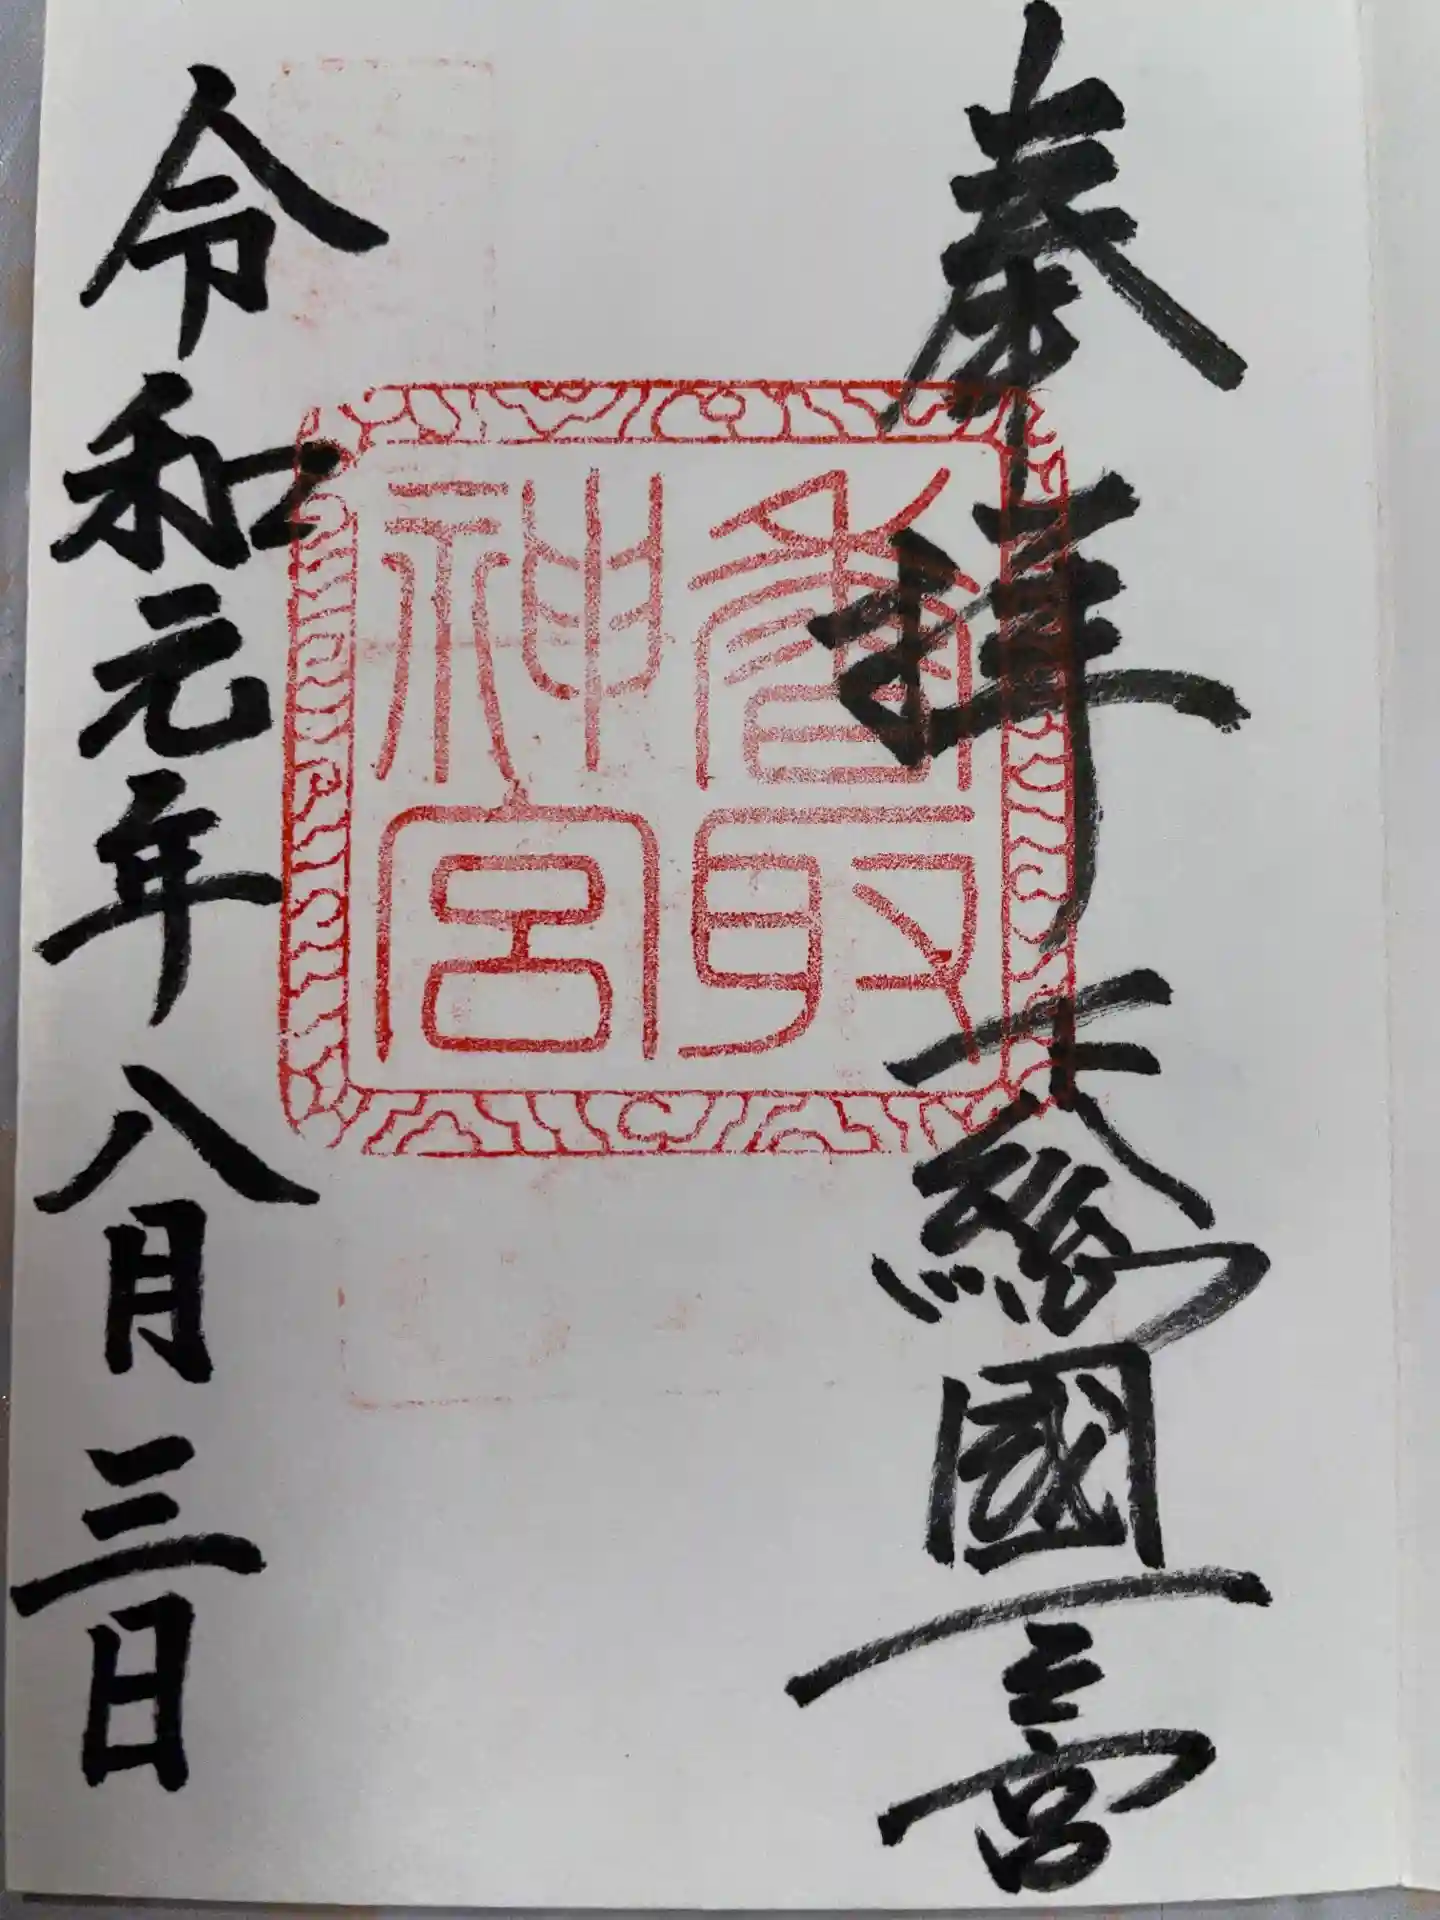 奉拝　下総國一之宮
香取
神宮
令和元年八月三日